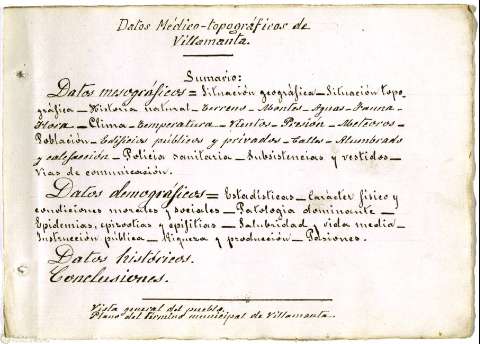 Datos Médico-topográficos de
Villamanta.
Sumario:
Datos mesográficos = Situación geográfica_Situación topo-
gráfica_Historia natural_Terreno_Montes_Aguas_Fauna_
Flora_Clima_Temperatura_Vientos_Presión_Meteoros_
Población_Edificios públicos y privados_Calles_Alumbrado
y calefacción_Policía sanitaria_Subsistencias y vestidos_
Vías de comunicación.
Datos demográficos = Estadísticas_Carácter físico y
condiciones morales y sociales_Patología dominante_
Epidemias, epizootias y epifitias_Salubridad y vida media_
Instrucción pública_Riqueza y producción_Pasiones.
Datos históricos.
Conclusiones.
Vista general del pueblo.
Plano del término municipal de Villamanta.